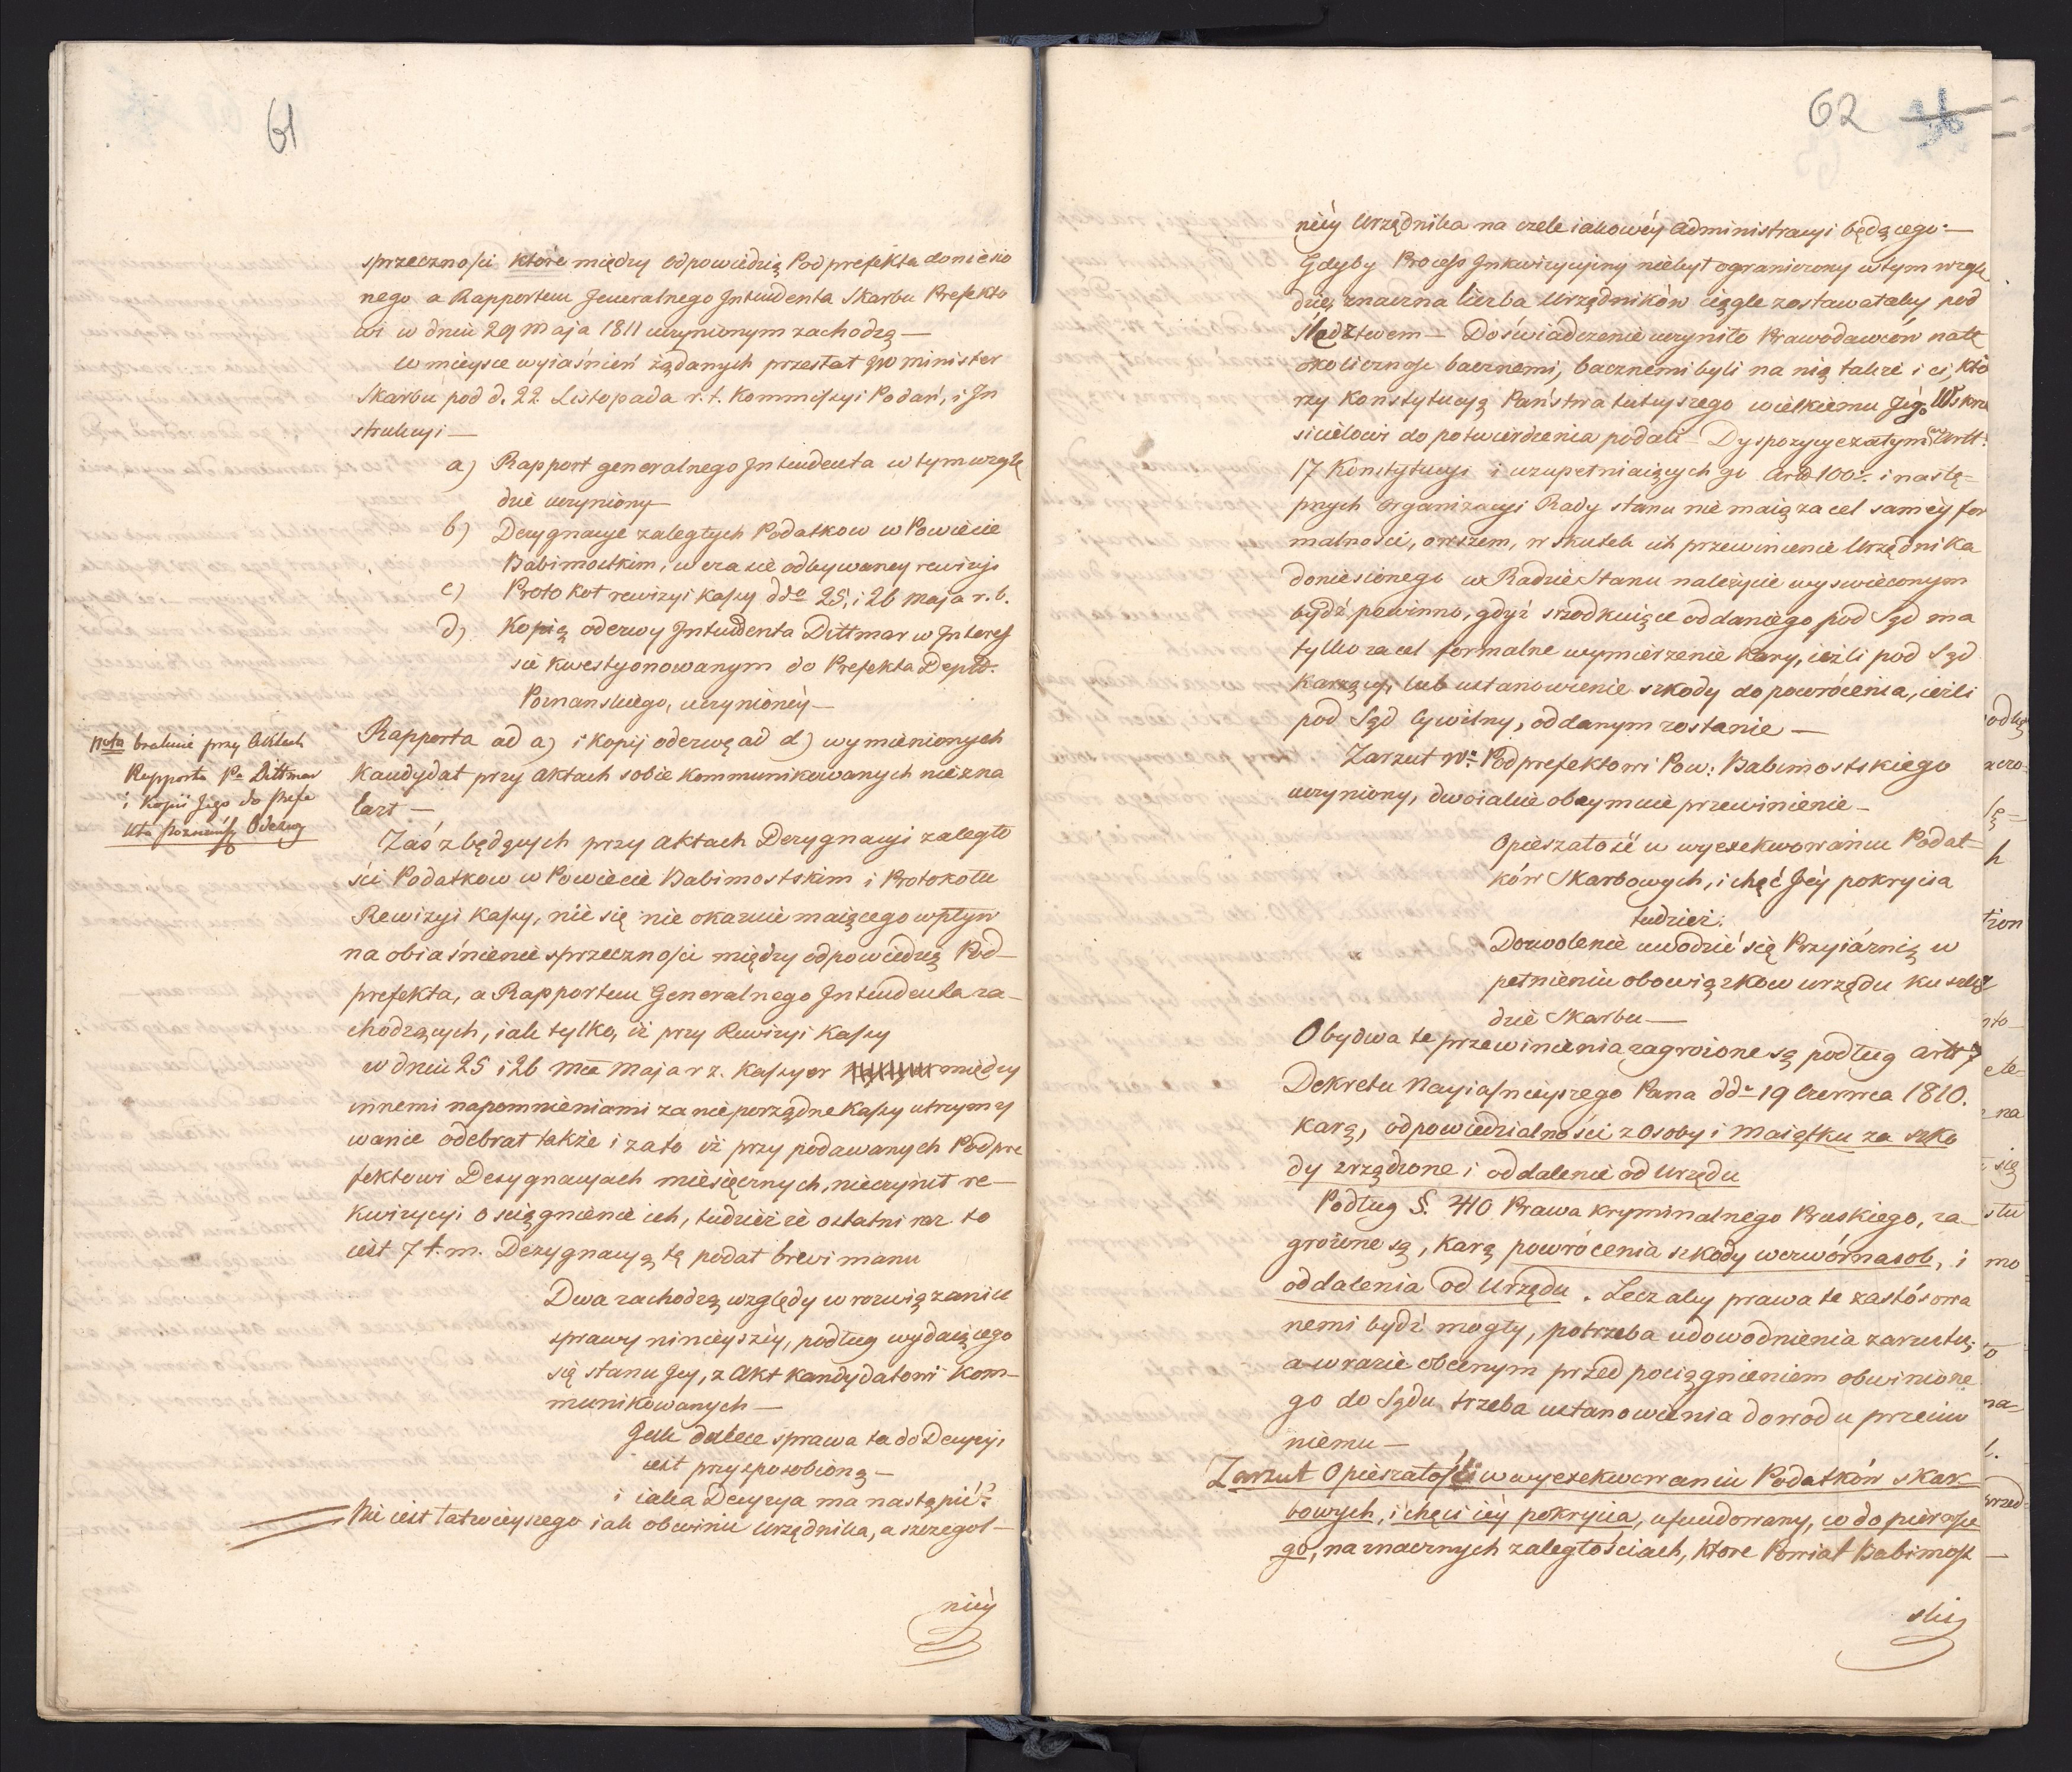 61
sprzeczności które między odpowiedzią Podprefekta doniesio
nego a Rapportem Jeneralnego Intendenta Skarbu Prefekto
wi w dniu 29 Maja 1811 uczynionym zachodzą —
W mieysce wyiaśnień żądanych przesłał JW Minister
Skarbu pod d. 22. Listopada r. t. Kommissyi Podań, i In
strukcyi —
a) Rapport generalnego Intendenta w tym wzglę
dzie uczyniony —
b) Dezygnacye zaległych Podatkow w Powiecie
Babimostkim, w czasie odbywaney rewizyi
c) Protokoł rewizyi kassy ddo 25, i 26 maja r. b.
d) Kopią odezwy Intendenta Dittmar w Interes
sie kwestyonowanym do Prefekta Deptu.
Poznanskiego, uczynioney —
Rapportu ad a) i kopij odezwę ad d) wymienionych
Kandydat przy aktach sobie kommunikowanych niezna
lazł —
nota brakuie przy aktach
Rapportu Pa Dittmar
i kopii Jego do Prefe
kta Poznańsk. Odezwy
Zaś z będących przy aktach Dezygnacyi zaległo
ści Podatkow w Powiecie Babimostskim i Protokołu
Rewizyi Kassy, nie się nie okazuie maiącego wpływ
na obiaśnienie sprzeczności między odpowiedzią Pod-
prefekta, a Rapportem Generalnego Intendenta za-
chodzących, iak tylko, iż przy Rewizyi Kassy
w dniu 25 i 26 Maja r z. Kassyer między
innemi napomnieniami za nieporządne Kassy utrzymy
wanie odebrał także i za to iż przy podawanych Podpre
fektowi Dezygnacyach miesięcznych, nieczynił re-
kwizycyi o sciągnienie ich, tudzież że ostatni raz to
iest 7 t. m. Dezygnacyą tę podał brevi manu
Dwa zachodzą względy w rozwiązaniu
sprawy ninieyszey, podług wydaiącego
się stanu Jey, z Akt kandydatowi kom-
munikowanych —
Jak dalece sprawa ta do Decyzyi,
iest przysposobioną —
i iaka Decyzya ma nastąpić?
Nie iest łatwieyszego iak obwinić Urzędnika, a szczegol-
niey
62
niey Urzędnika na czele iakowey administracyi będącego: —
Gdyby Process Inkwizycyiny niebył ograniczony w tym wzglę
dzie, znaczna liczba Urzędników ciągle zostawałaby pod
śledztwem — Doświadczenie uczyniło Prawodawców na tę
okoliczność bacznemi, bacznemi byli na nią także i ci, któ
rzy Konstytucyą Państwa tutyszego wielkiemu Jego Wskrze
sicielowi do potwierdzenia podali — Dyspozycye zatym Artt:
17 Konstytucyi i uzupełniaiących go Artt 100. i nastę-
pnych organizacyi Rady stanu nie maią za cel samey for
malności, owszem, w skutek ich przewinienie Urzędnika
doniesionego w Radzie Stanu należycie wyswieconym
bydź powinno, gdyż srzodkuiące oddanie go pod Sąd ma
tylko za cel formalne wymierzenie kary, ieżli pod Sąd
karzący, lub ustanowienie szkody do powrócenia, ieżli
pod Sąd Cywilny, oddanym zostanie —
Zarzut W. Podprefektowi Pow: Babimostskiego
uczyniony, dwoiakie obeymuie przewinienie —
Opieszałość w wyexekwowaniu Podat-
ków Skarbowych, i chęć Jey pokrycia
tudzież:
Dozwolenie uwodzić się Przyiaźnią w
pełnieniu obowiązkow urzędu ku szko
dzie Skarbu —
Obydwa te przewinienia zagrożone są podług artt 7
Dekretu Nayiaśnieyszego Pana dd. 19 Czerwca 1810.
karą, odpowiedzialności z osoby i maiątku za szko
dy zrządzone i oddalenie od Urzędu
Podług §. 410 Prawa kryminalnego Pruskiego, za-
grożone są, karą powrócenia szkody wczwórnasob, i
oddalenia od Urzędu. Lecz aby prawa te zastósowa
nemi bydź mogły, potrzeba udowodnienia zarzutu;
a w razie obecnym przed pociągnieniem obwinione
go do Sądu trzeba ustanowienia dowodu przeciw
niemu —
Zarzut Opieszałości w wyexekwowaniu Podatków skar-
bowych, i chęci iey pokrycia, ufundowany, co do pierwsze
go, na znacznych zaległościach, które Powiat Babimost
ski